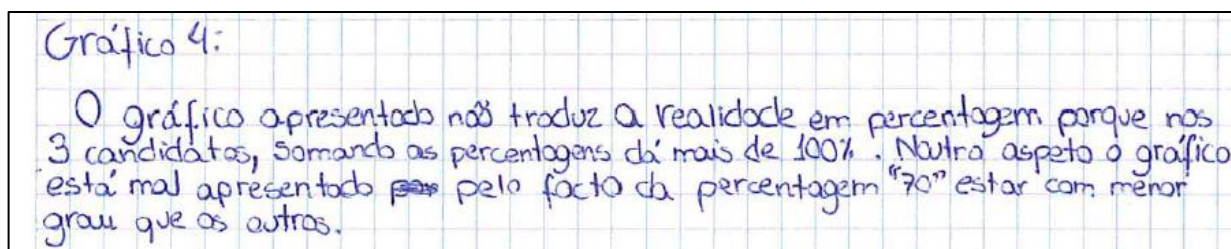 Gráfico 4:
O gráfico apresentado não traduz a realidade em percentagem porque nos
3 candidatos, somando as percentagens dá mais de 100%. Noutro aspeto o gráfico
está mal apresentado pelo facto da percentagem "70" estar com menor
grau que os outros.